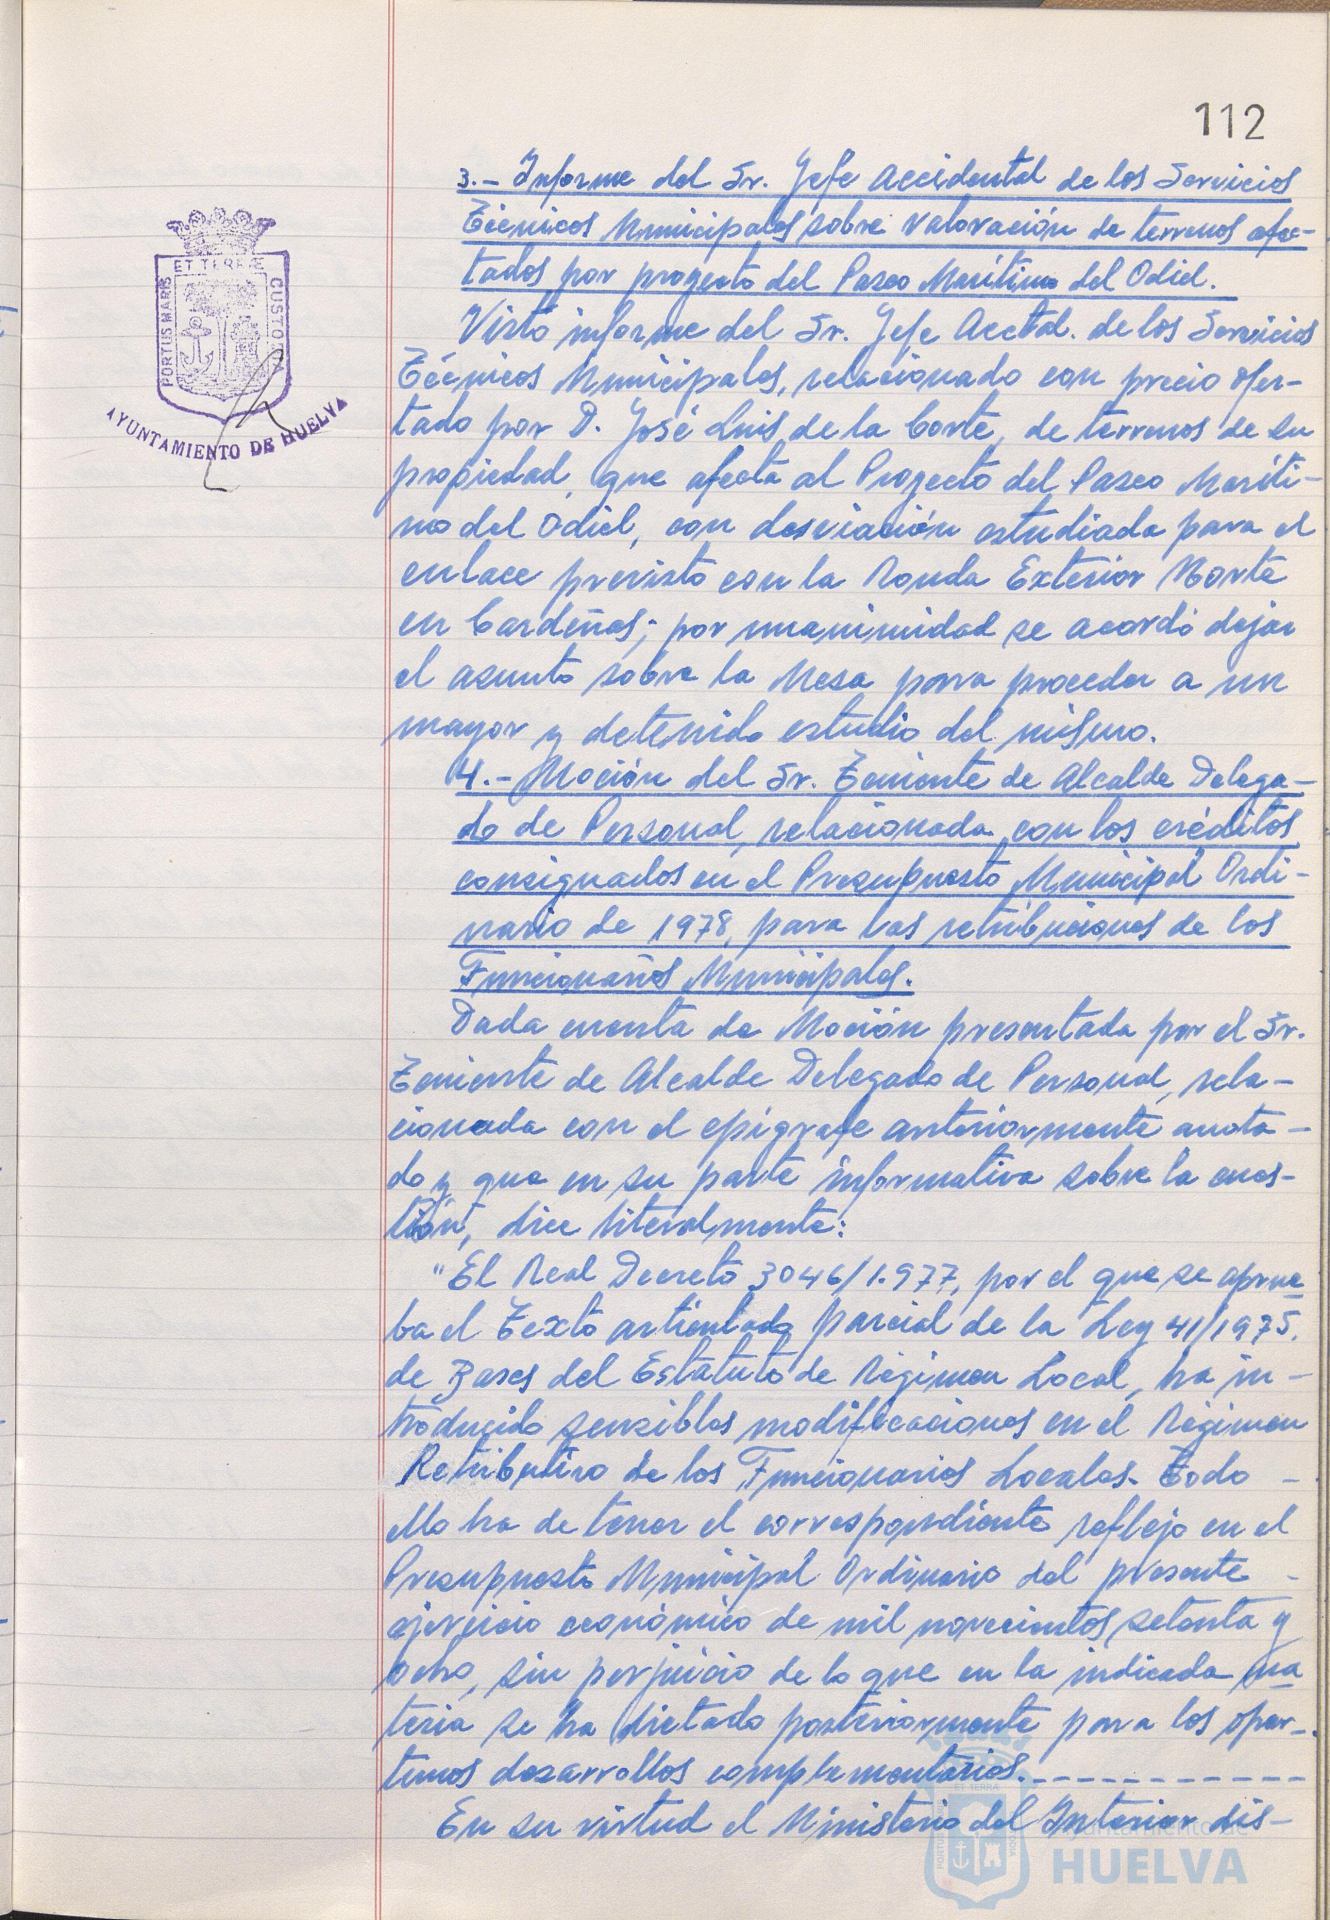 112
3.- Informe del Sr. Jefe Accidental de los Servicios
Técnicos Municipales sobre valoración de terrenos afec-
tados por proyecto del Paseo Marítimo del Odiel.
Visto informe del Sr. Jefe Acctal. de los Servicios
Técnicos Municipales, relacionado con precio ofer-
tado por D. José Luis de la Corte, de terrenos de su
propiedad, que afecta al Proyecto del Paseo Maríti-
mo del Odiel, con desviación estudiada para el
enlace previsto con la Ronda Exterior Norte
en Cardeñas; por unanimidad se acordó dejar
el asunto sobre la Mesa para proceder a un
mayor y detenido estudio del mismo.
4.- Moción del Sr. Teniente de Alcalde Delega-
do de Personal, relacionada con los créditos
consignados en el Presupuesto Municipal Ordi-
nario de 1978, para las retribuciones de los
Funcionarios Municipales.
Dada cuenta de Moción presentada por el Sr.
Teniente de Alcalde Delegado de Personal, rela-
cionada con el epígrafe anteriormente anota-
do y que en su parte informativa sobre la cues-
tión, dice literalmente:
"El Real Decreto 3046/1.977, por el que se aprue
ba el Texto articulado parcial de la Ley 41/1975,
de Bases del Estatuto de Régimen Local, ha in-
troducido sensibles modificaciones en el Régimen
Retributivo de los Funcionarios Locales. Todo -
ello ha de tener el correspondiente reflejo en el
Presupuesto Municipal Ordinario del presente -
ejercicio económico de mil novecientos setenta y
ocho, sin perjuicio de lo que en la indicada ma
teria se ha dictado posteriormente para los opor-
tunos desarrollos complementarios.- - - - - - - - - - -
En su virtud el Ministerio del Interior dis-
PORTUS MARIS ET TERRÆ CUSTODIA
AYUNTAMIENTO DE HUELVA
Ayuntamiento de
HUELVA